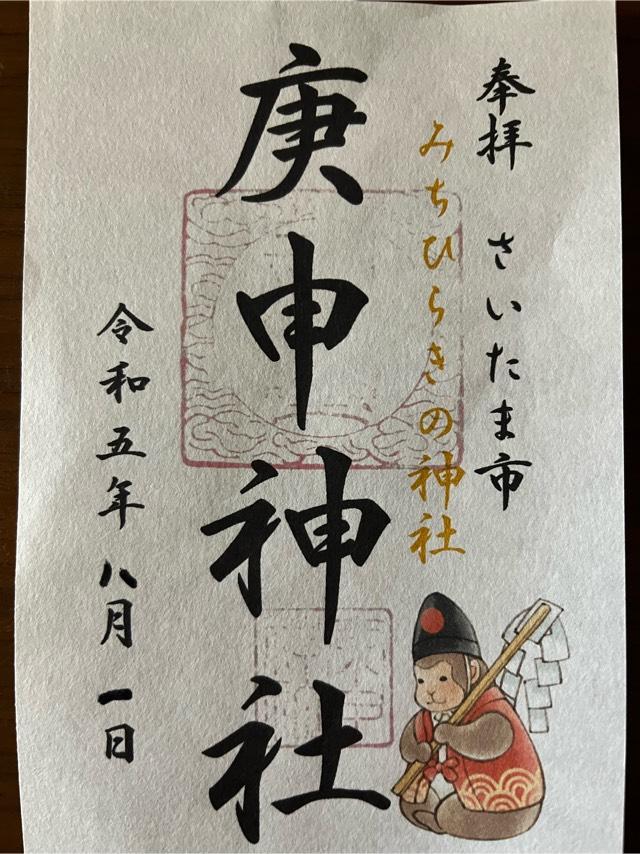 奉拝 さいたま市
みちひらきの神社
庚申神社
令和五年 八月 一日